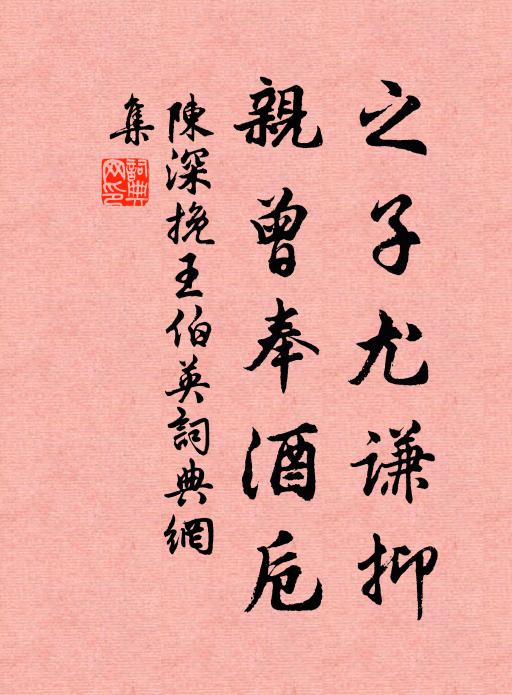 之子尤谦抑
親曾奉酒卮
陳深挽王伯英詞典網
集
詞典網印